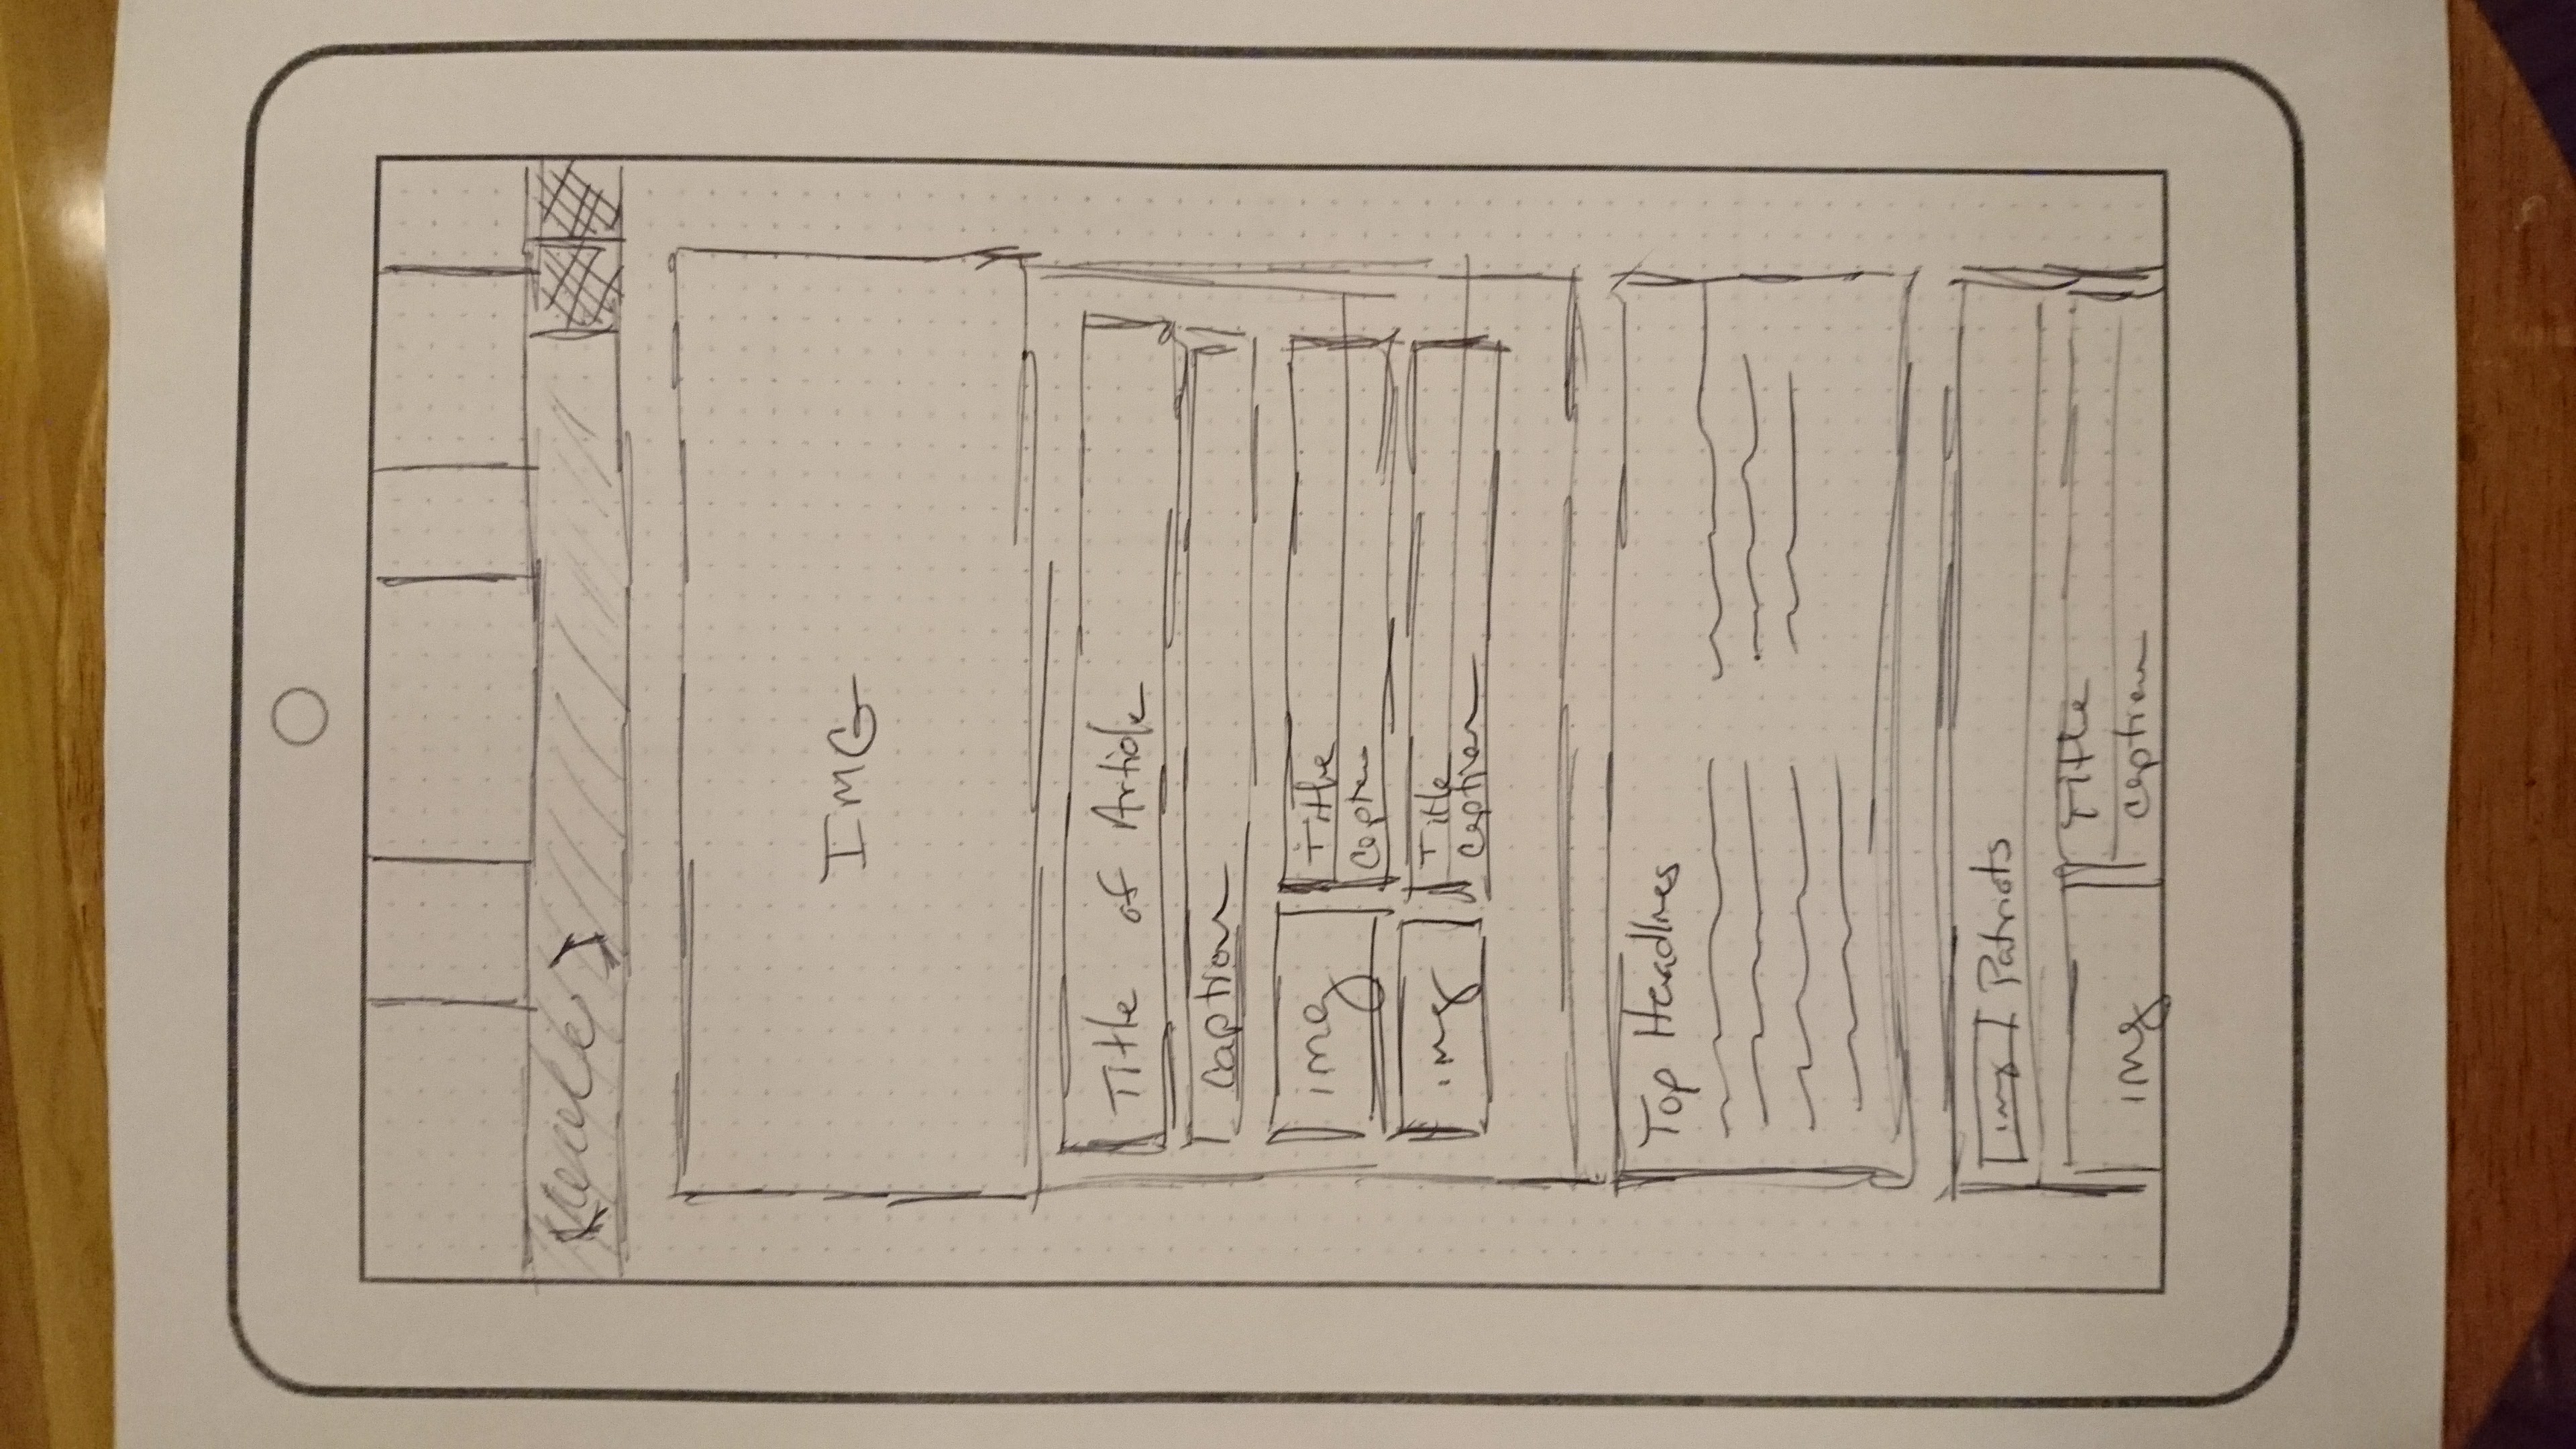 IMG
Title of Article
Caption
img
Title
Caption
img
Title
Caption
Top Headlines
img
Patriots
img
Title
Caption